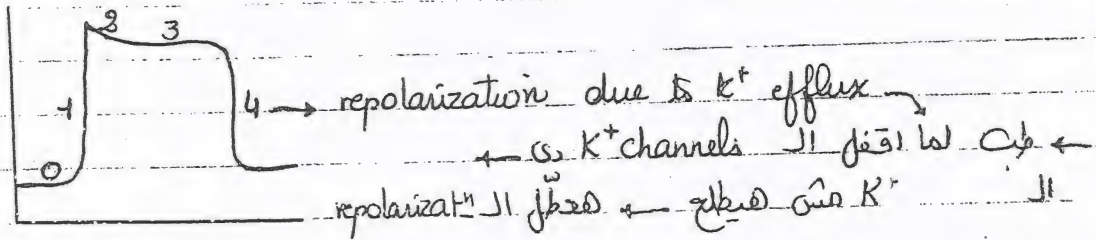 2 3
1 4 → repolarization due to K⁺ efflux
0 ← طب لما اقفل ال K⁺ channels دى ←
ال K⁺ مش هيطلع ← هعطّل ال repolarizatⁿ